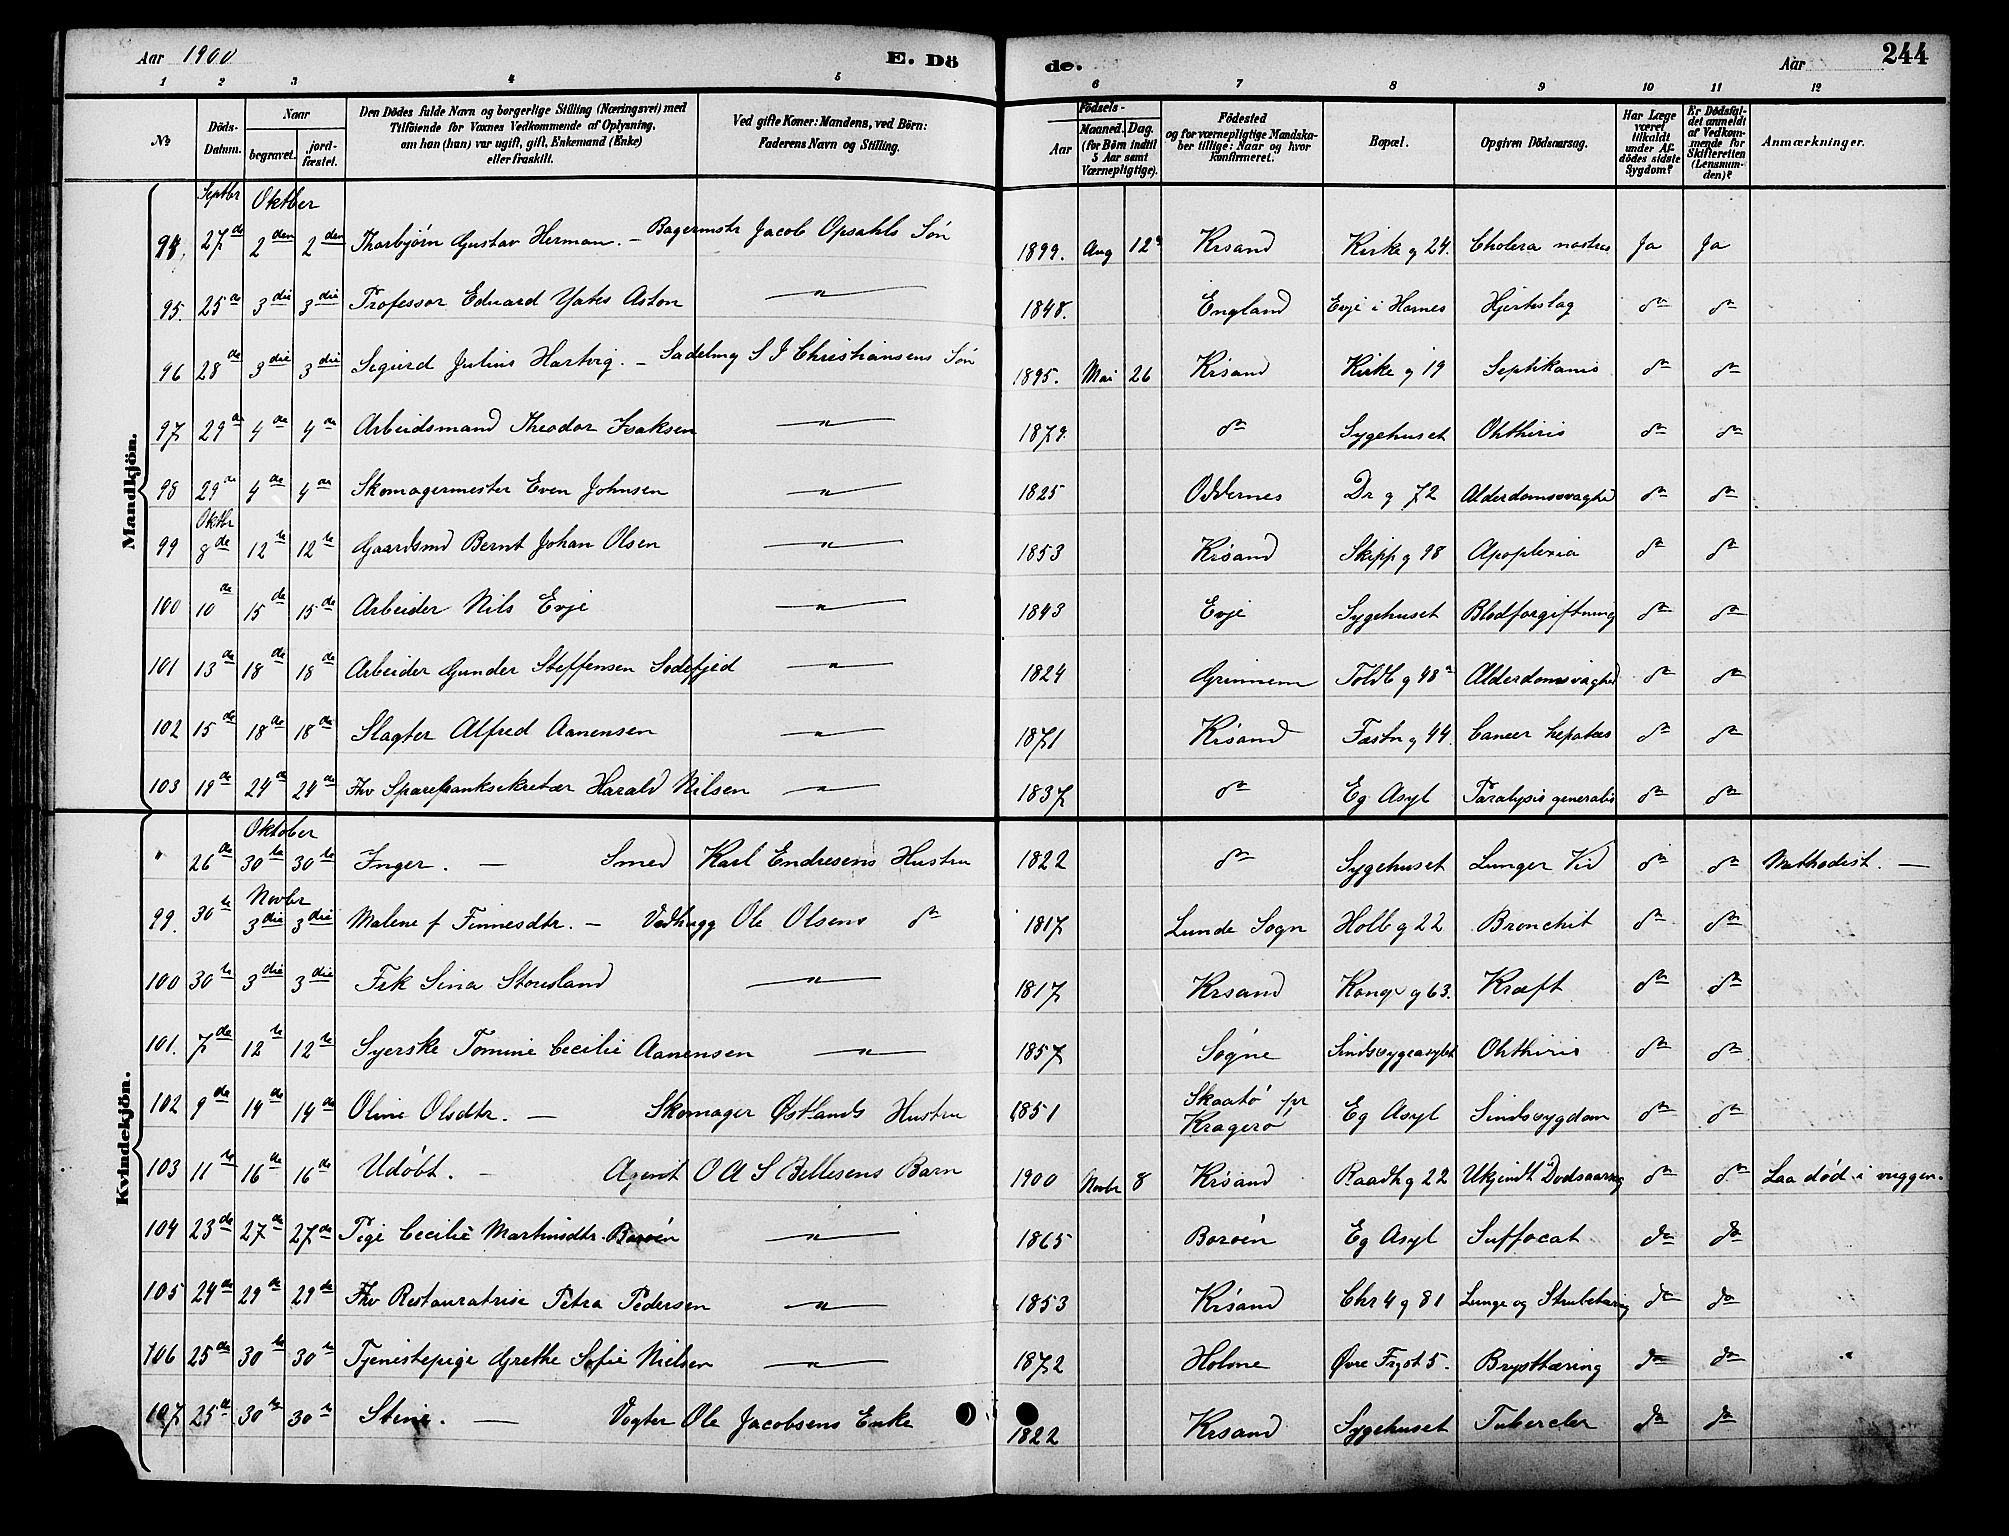 Aar 1900
E. Dö
de.
Aar
244
1 2 3 4 5 6 7 8 9 10 11 12
No.
Döds-Datum.
Naar
begravet.
jord-fæstet.
Den Dödes fulde Navn og borgerlige Stilling (Næringsvei) med
Tilföiende for Voxnes Vedkommende af Oplysning,
om han (hun) var ugift, gift, Enkemand (Enke)
eller fraskilt.
Ved gifte Koner: Mandens, ved Börn:
Faderens Navn og Stilling.
Födsels-
Aar
Maaned. Dag.
(for Börn indtil
5 Aar samt
Værnepligtige).
Födested
og for værnepligtige Mandska-
ber tillige: Naar og hvor
konfirmeret.
Bopæl.
Opgiven Dödsaarsag.
Har Læge
været
tilkaldt
under Af-
dödes sidste
Sygdom?
Er Dödsfal-
det anmeldt
af Vedkom-
mende for
Skifteretten
(Lensman-
den)?
Anmærkninger.
Mandkjön.
Septbr Oktber
94. 27de 2den 2den Thorbjörn Gustav Herman. — Bagermstr Jacob Opsahls Søn 1899. Aug 12 Krsand Kirkeg 24. Cholera nostras Ja Ja
95. 25de 3die 3die Professor Eduard Yates Aston — " — 1848. England Evje i Hornes Hjerteslag do do
96 28de 3die 3die Sigurd Julius Hartvig. — Sadelmg S J Christiansens Søn 1895. Mai 26 Krsand Kirkeg 19 do do
97 29de 4de 4de Arbeidsmand Theodor Isaksen — " — 1879. do Sygehuset Phthisis do do
98 29de 4de 4de Skomagermester Even Johnsen — " — 1825 Oddernes Dr g 72 Alderdomssvaghed do do
Oktbr
99 8de 12te 12te Gaardsmd Bernt Johan Olsen — " — 1853 Krsand Skippg 98 Apoplexia do do
100 10de 15de 15de Arbeider Nils Evje — " — 1843 Evje Sygehuset Blodforgiftning do do
101 13de 18de 18de Arbeider Gunder Steffensen Sodefjed — " — 1824 Grimnem Toldb g 48 Alderdomssvaghed do do
102 15de 18de 18de Slagter Alfred Aanensen — " — 1871 Krsand Fastn g 44. Cancer hepatis do do
103 19de 24de 24de Fhv Sparebanksekretær Harald Nilsen — " — 1837 do Eg Asyl Paralysis generalis do do
Kvindekjön.
Oktober
" 26de 30te 30te Inger. — Smed Karl Endresens Hustru 1822 do Sygehuset Lunger Vid do do Methodist. —
Novbr
99. 30te 3die 3die Malene f Finnesdtr. — Vedhugg Ole Olsens do 1817 Lunde Sogn Holbg 22 Bronchit do do
100 30te 3die 3die Frk Sina Stousland — " — 1817 Krsand Konge g 63. Kræft do do
101. 7de 12te 12te Syerske Tomine Cecilie Aanensen — " — 1857 Søgne Sindssygeasylet Phthisis do do
102 9de 14de 14de Oline Olsdtr. — Skomager Østlands Hustru 1851 Skaatø pr Kragerø Eg Asyl Sindssygdom do do
103 11te 16de 16de Udøbt. — Agent O A S Bellesens Barn 1900 Novbr 8 Krsand Raadhg 22 Ukjendt Dødsaarsag do do Laa død i vuggen.
104 23de 27de 27de Pige Cecilie Martinsdtr. Borøen — " — 1865 Borøen Eg Asyl Suffocat do do
105 24de 29de 29de Fhv Restauratrise Petra Pedersen — " — 1853 Krsand Chr 4 g 81 Lunge og Strubetæring do do
106 25de 30te 30te Tjenestepige Grethe Sofie Nielsen — " — 1872 Holme Øvre Frgst 5. Brysttæring do do "
107 25de 30te 30te Stine. — Vogter Ole Jacobsens Enke 1822 Krsand Sygehuset Tubercler do do